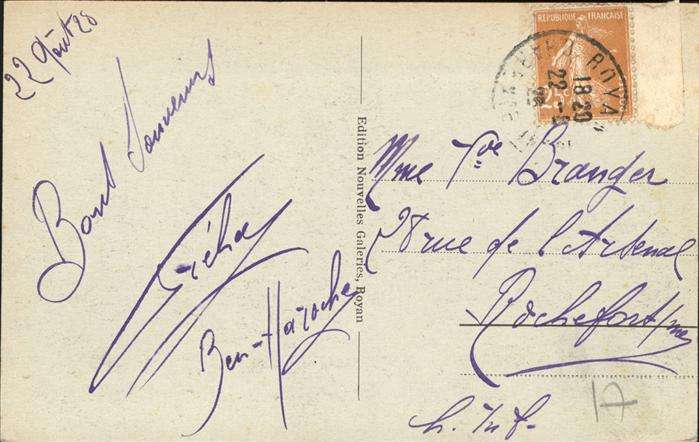 22 Août 28
Bons Souvenirs
Ben-Haroche
Edition Nouvelles Galeries, Royan
REPUBLIQUE FRANÇAISE
25c
ROYAN
18 20
22 - 8
28
Mme Vve Branger
28 rue de l'Arsenal
Rochefort/mer
Ch. Inf.